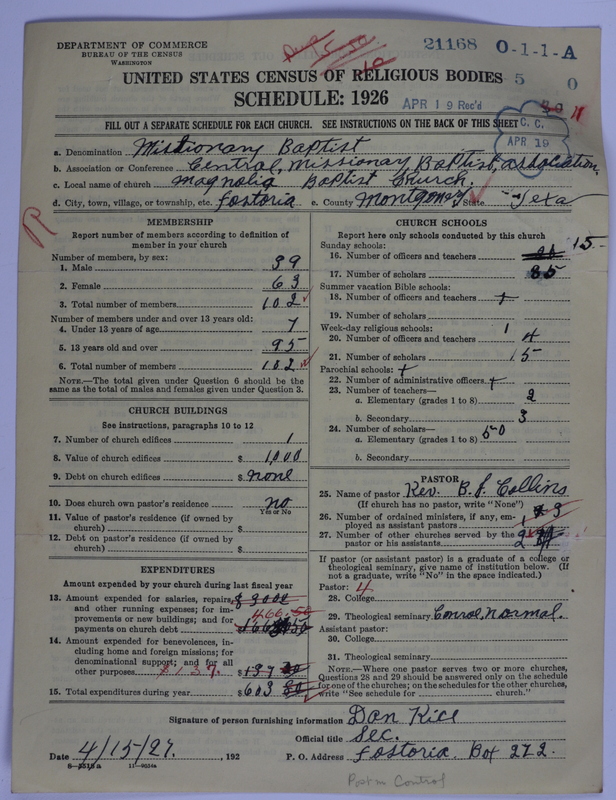 DEPARTMENT OF COMMERCE
BUREAU OF THE CENSUS
WASHINGTON
21168 O-1-1-A
UNITED STATES CENSUS OF RELIGIOUS BODIES 5 0
SCHEDULE: 1926
APR 19 Rec'd
FILL OUT A SEPARATE SCHEDULE FOR EACH CHURCH. SEE INSTRUCTIONS ON THE BACK OF THIS SHEET
C. C.
APR 19
a. Denomination Missionary Baptist
b. Association or Conference Central, Missionary Baptist, association,
c. Local name of church Magnolia Baptist Church.
d. City, town, village, or township, etc. Fostoria e. County Montgomery State Texa
R
MEMBERSHIP
Report number of members according to definition of
member in your church
Number of members, by sex:
1. Male 39
2. Female 63
3. Total number of members 102
Number of members under and over 13 years old:
4. Under 13 years of age 7
5. 13 years old and over 95
6. Total number of members 102
NOTE.—The total given under Question 6 should be the
same as the total of males and females given under Question 3.
CHURCH BUILDINGS
See instructions, paragraphs 10 to 12
7. Number of church edifices 1
8. Value of church edifices $ 1,000
9. Debt on church edifices $ none
10. Does church own pastor's residence no
Yes or No
11. Value of pastor's residence (if owned by
church) $
12. Debt on pastor's residence (if owned by
church) $
EXPENDITURES
Amount expended by your church during last fiscal year
13. Amount expended for salaries, repairs,
and other running expenses; for im-
provements or new buildings; and for 466.50
payments on church debt
14. Amount expended for benevolences, in-
cluding home and foreign missions; for
denominational support; and for all
other purposes $ 137
15. Total expenditures during year $ 603
CHURCH SCHOOLS
Report here only schools conducted by this church
Sunday schools:
16. Number of officers and teachers 15
17. Number of scholars 85
Summer vacation Bible schools:
18. Number of officers and teachers
19. Number of scholars
Week-day religious schools: 1
20. Number of officers and teachers 4
21. Number of scholars 15
Parochial schools:
22. Number of administrative officers
23. Number of teachers—
a. Elementary (grades 1 to 8) 2
b. Secondary 3
24. Number of scholars—
a. Elementary (grades 1 to 8) 50
b. Secondary
PASTOR
25. Name of pastor Rev. B. F. Collins
(If church has no pastor, write "None")
26. Number of ordained ministers, if any, em-
ployed as assistant pastors
27. Number of other churches served by the
pastor or his assistants
If pastor (or assistant pastor) is a graduate of a college or
theological seminary, give name of institution below. (If
not a graduate, write "No" in the space indicated.)
Pastor: 4
28. College
29. Theological seminary Conroe, Normal.
Assistant pastor:
30. College
31. Theological seminary
NOTE.—Where one pastor serves two or more churches,
Questions 28 and 29 should be answered only on the schedule
for one of the churches; on the schedules for the other churches,
write "See schedule for church."
Signature of person furnishing information Dan Rice
Official title Sec.
Date 4/15/27. , 192 P. O. Address Fostoria. Box 272.